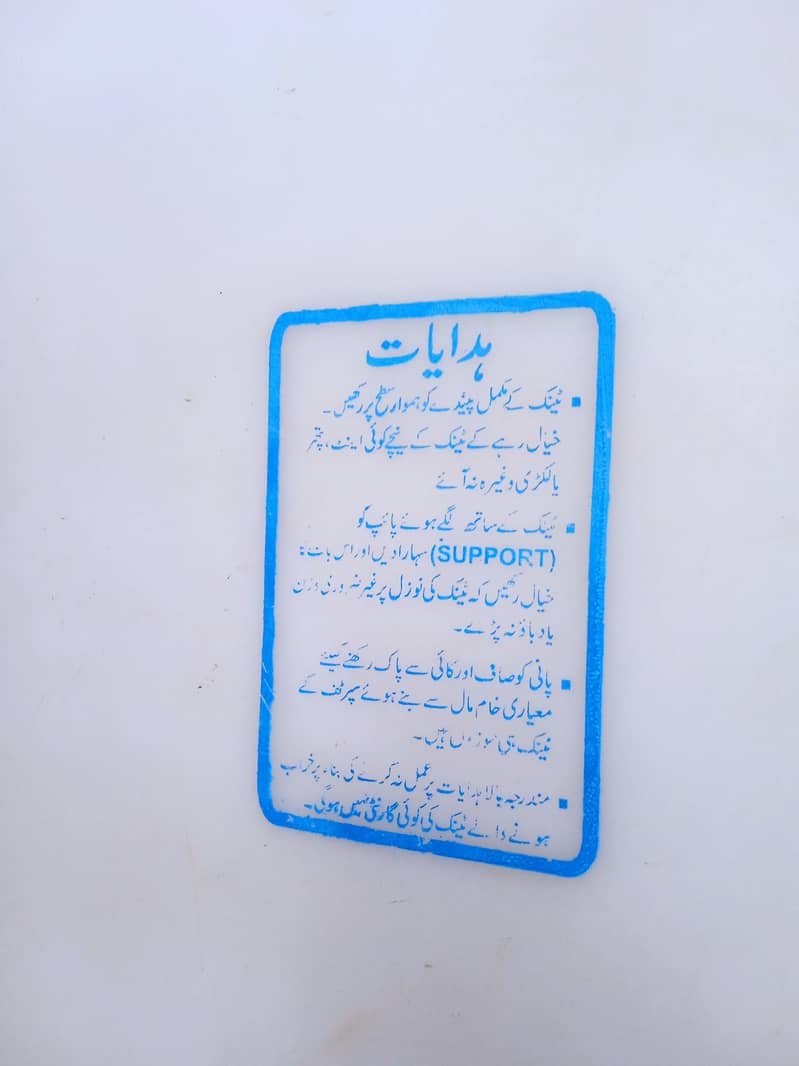 ہدایات
▪ ٹینک کے مکمل پیندے کو ہموار سطح پر رکھیں۔
خیال رہے کے ٹینک کے نیچے کوئی اینٹ، پتھر
یا لکڑی وغیرہ نہ آئے
▪ ٹینک کے ساتھ لگے ہوئے پائپ کو
(SUPPORT) سہارا دیں اور اس بات کا
خیال رکھیں کہ ٹینک کی نوزل پر غیر ضروری وزن
یا دباؤ نہ پڑے۔
▪ پانی کو صاف اور کائی سے پاک رکھنے کیلئے
معیاری خام مال سے بنے ہوئے سپر ٹف کے
ٹینک ہی موزوں ہیں۔
▪ مندرجہ بالا ہدایات پر عمل نہ کرنے کی بناء پر خراب
ہونے والے ٹینک کی کوئی گارنٹی نہیں ہوگی۔